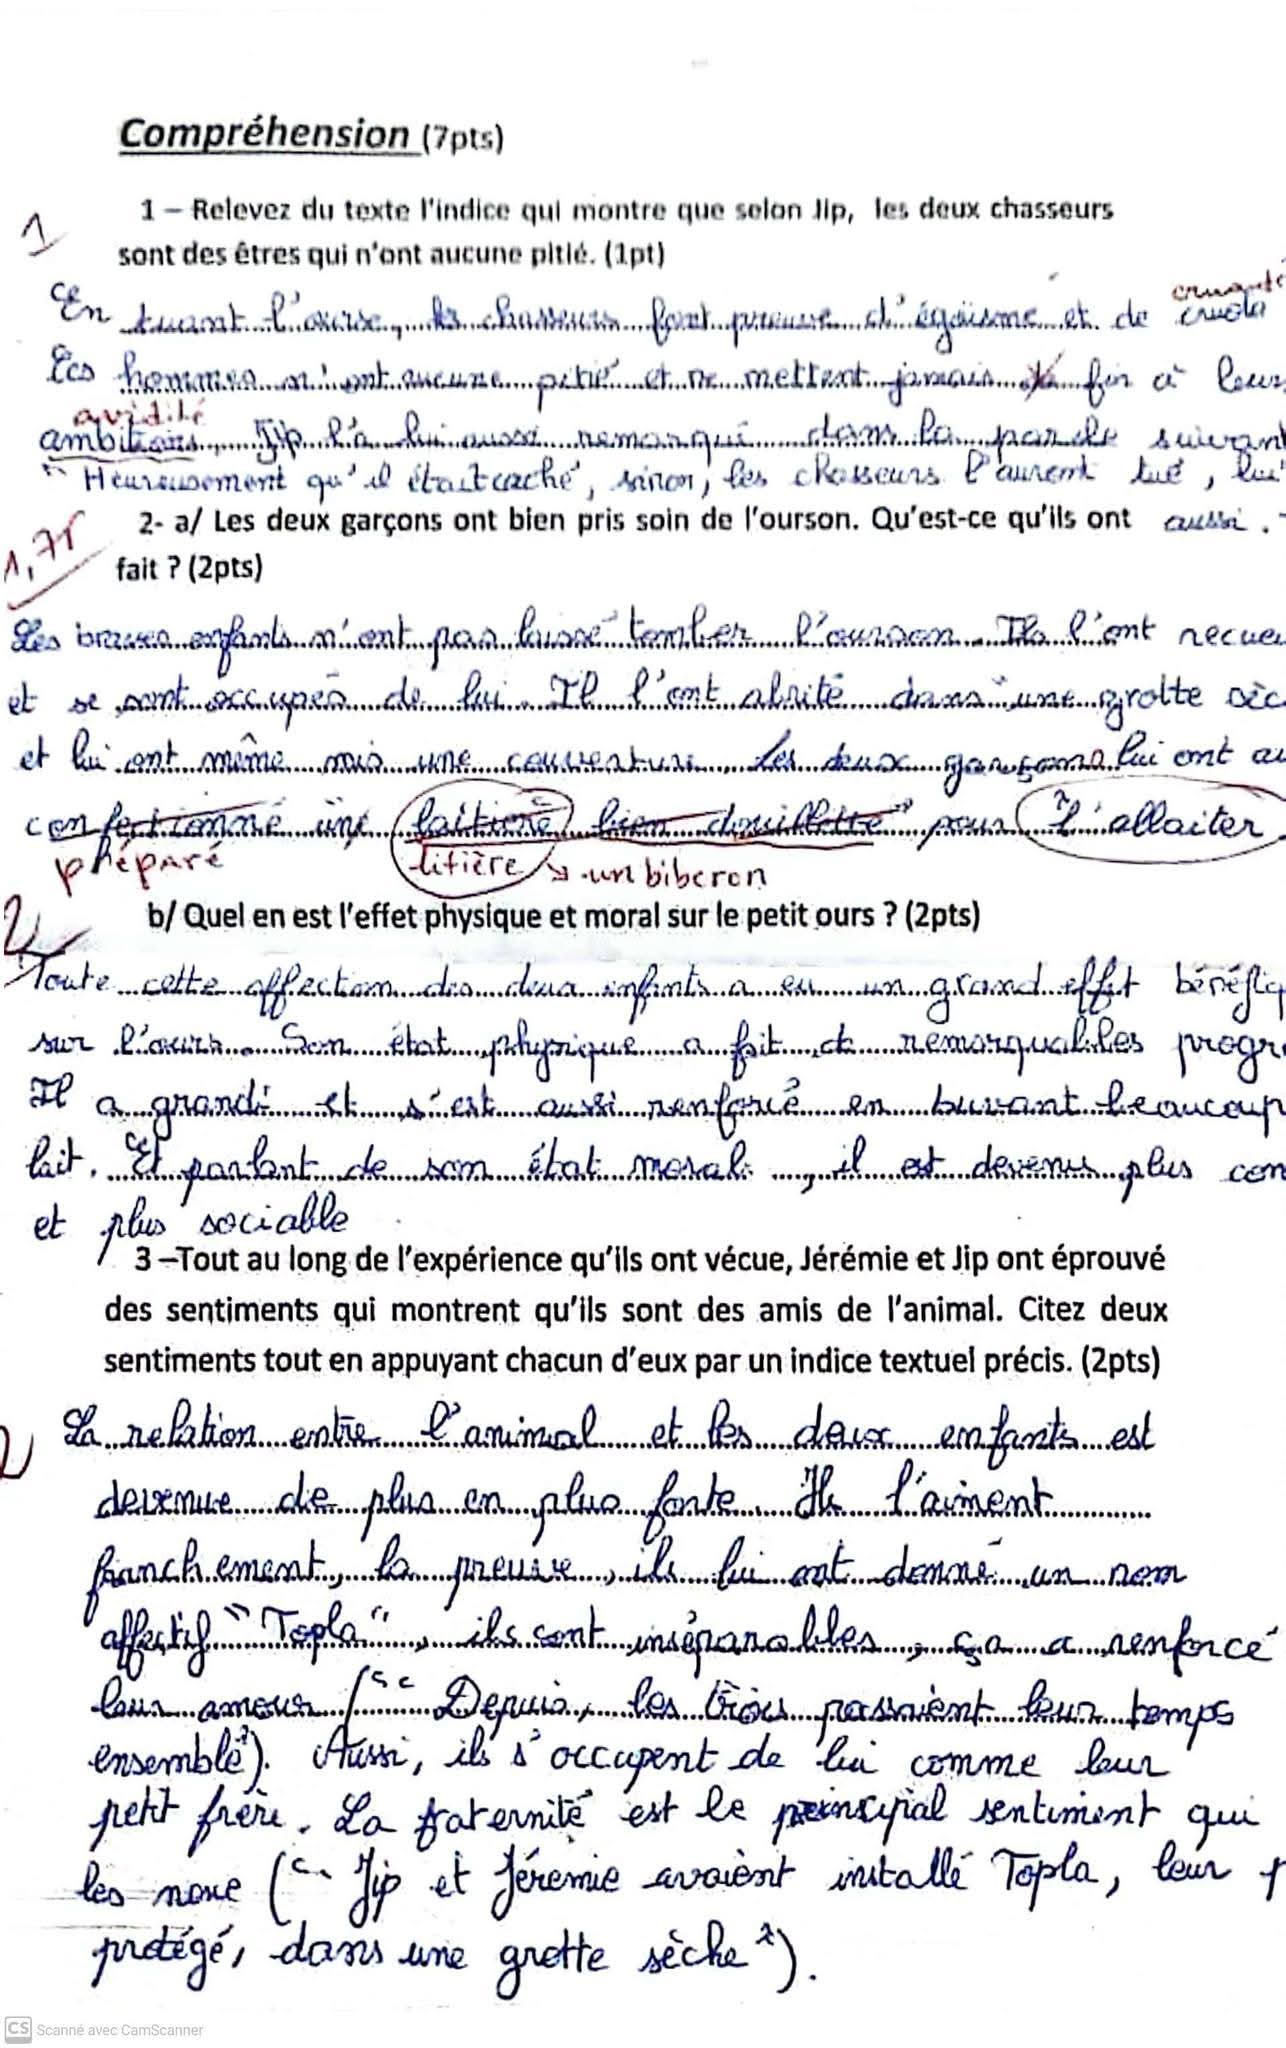 Compréhension (7pts)
1 – Relevez du texte l'indice qui montre que selon Jip, les deux chasseurs
1
sont des êtres qui n'ont aucune pitié. (1pt)
cruauté
En tuant l'ourse, les chasseurs font preuve d'égoïsme et de
Ces hommes n'ont aucune pitié et ne mettent jamais fin à leur
avidité
ambitions, Jip l'a lui aussi remarqué dans la parole suivant
"Heureusement qu'il était caché, sinon, les chasseurs l'auront tué, lui
aussi.
1,75
2- a/ Les deux garçons ont bien pris soin de l'ourson. Qu'est-ce qu'ils ont
fait ? (2pts)
Les braves enfants n'ont pas laissé tomber l'ourson. Ils l'ont recue
et se sont occupés de lui. Il l'ont abrité dans une grotte sèc
et lui ont même mis une couverture. Les deux garçons lui ont au
confectionné une laitière bien douillette" pour "l'allaiter
préparé litière un biberon
2
b/ Quel en est l'effet physique et moral sur le petit ours ? (2pts)
Toute cette affection des deux enfants a eu un grand effet bénéfiq
sur l'ours. Son état physique a fait de remarquables progr
Il a grandi et s'est aussi renforcé en buvant beaucoup
lait. Et parlant de son état moral, il est devenu plus con
et plus sociable
3 –Tout au long de l'expérience qu'ils ont vécue, Jérémie et Jip ont éprouvé
des sentiments qui montrent qu'ils sont des amis de l'animal. Citez deux
sentiments tout en appuyant chacun d'eux par un indice textuel précis. (2pts)
2
La relation entre l'animal et les deux enfants est
devenue de plus en plus forte. Ils l'aiment
franchement, la preuve, ils lui ont donné un nom
affectif "Topla", ils sont inséparables, ça a renforcé
leur amour (" Depuis, les trois passaient leur temps
ensemble"). Aussi, ils s'occupent de lui comme leur
petit frère. La fraternité est le principal sentiment qui
les noue (" Jip et Jéremie avaient installé Topla, leur p
protégé, dans une grotte sèche").
CS Scanné avec CamScanner